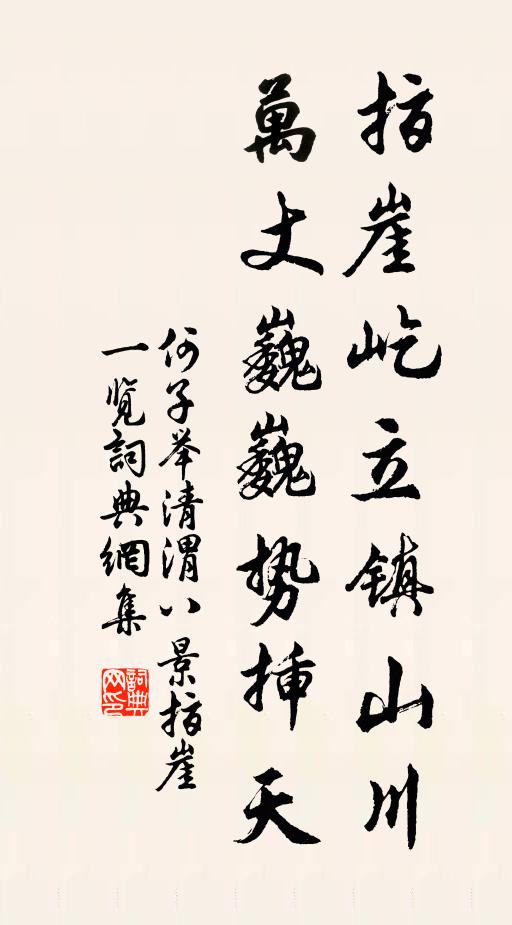 指崖屹立镇山川
萬丈巍巍势插天
何子举清渭八景指崖
一览詞典網集
詞典网印